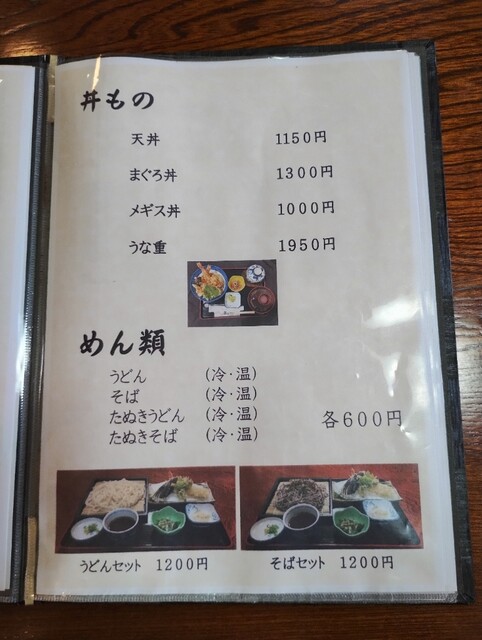 丼もの
天丼 1150円
まぐろ丼 1300円
メギス丼 1000円
うな重 1950円
めん類
うどん (冷・温)
そば (冷・温)
たぬきうどん (冷・温)
たぬきそば (冷・温)
各600円
うどんセット 1200円
そばセット 1200円